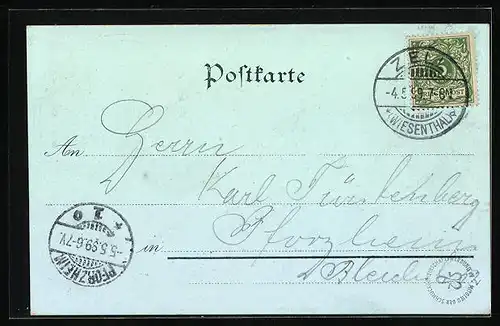 Postkarte
ZELL
-4.5.99.7-8V.
(WIESENTHAL)
5
An Herrn
Karl Fürstenberg
in Pforzheim
PFORZHEIM
-5.5.99.6-7V.